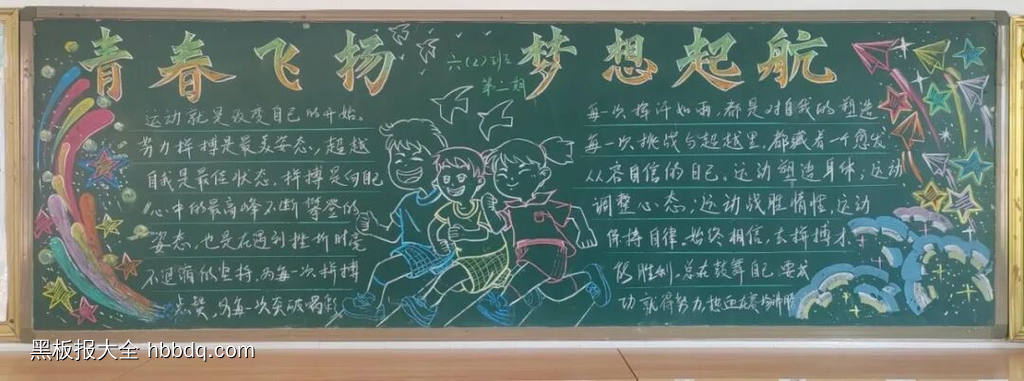 青春飞扬 梦想起航
六(2)班
第二期
运动就是改变自己的开始。
努力拼搏是最美姿态，超越
自我是最佳状态。拼搏是向自己
心中的最高峰不断攀登的
姿态，也是在遇到挫折时旁
不退缩的坚持，为每一次拼搏
点赞，为每一次突破喝彩
每一次挥汗如雨，都是对自我的塑造
每一次挑战与超越里，都藏着一个愈发
从容自信的自己。运动塑造身体，运动
调整心态，运动战胜惰性，运动
保持自律。始终相信，去拼搏才
能胜利。总在鼓舞自己，要成
功就得努力
黑板报大全 hbbdq.com